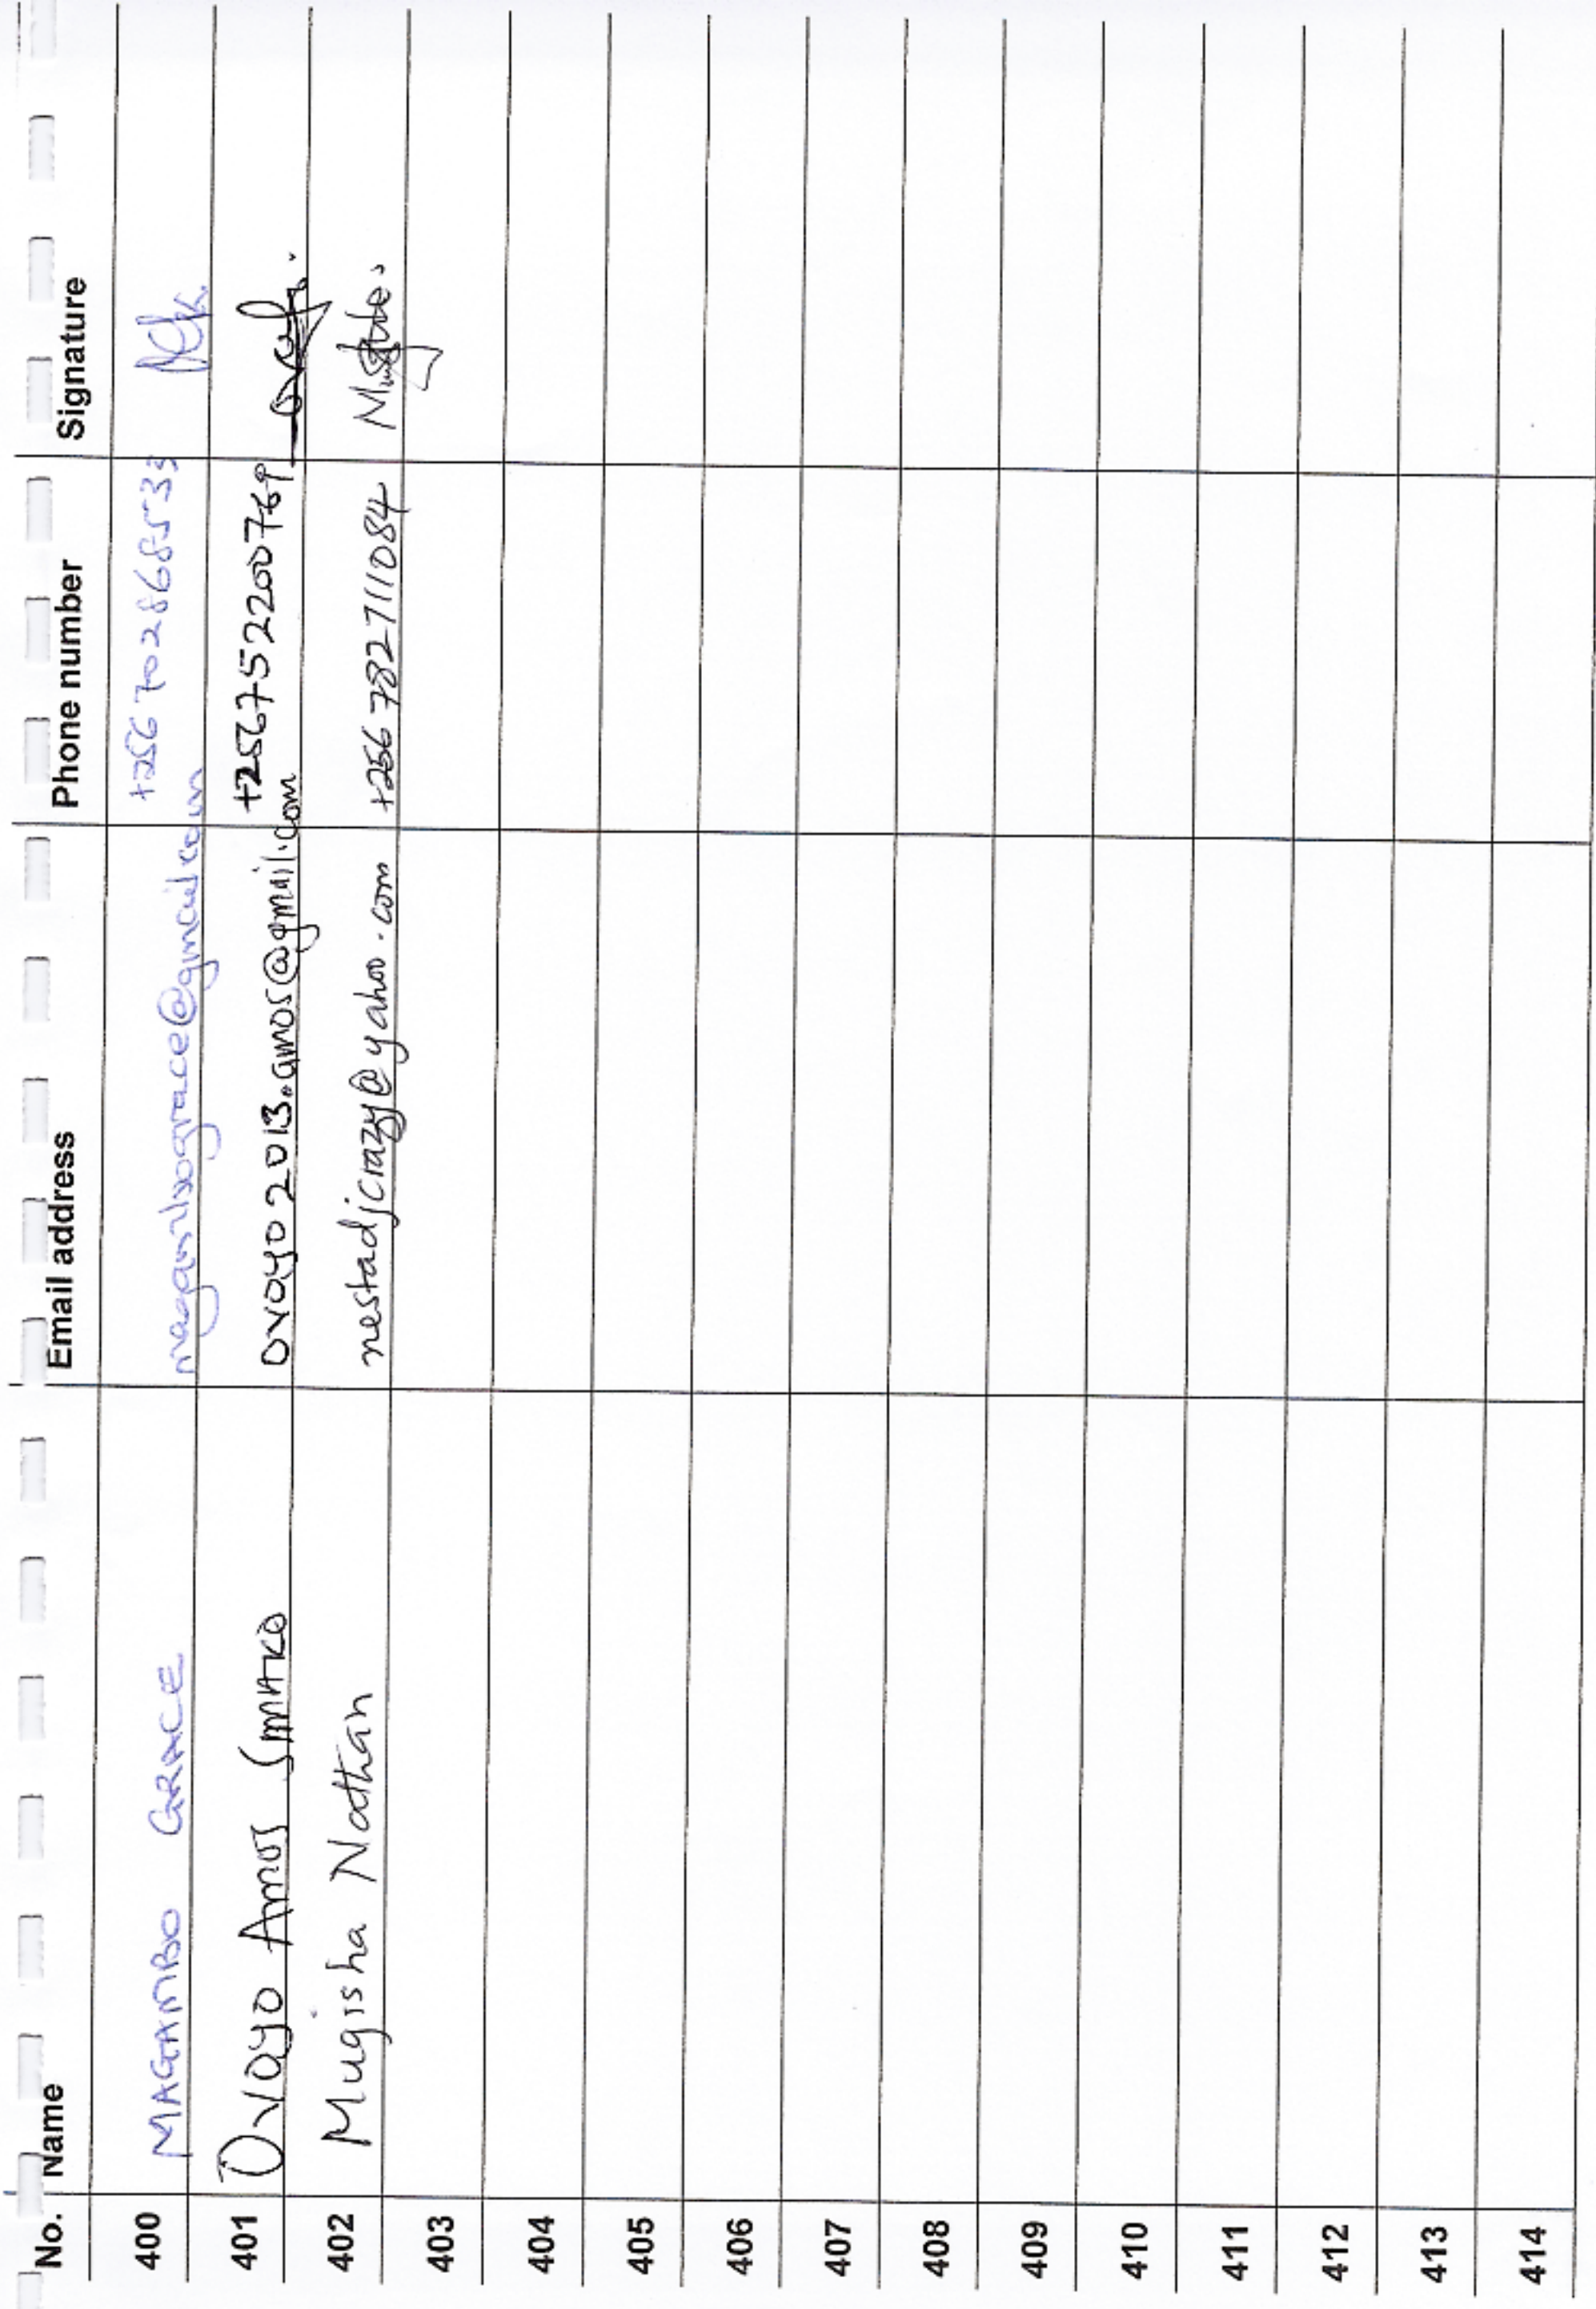 No. Name Email address Phone number Signature
400 MAGAMBO GRACE magambograce@gmail.com +256 702868533
401 Ovoyo Amos Smako ovoyo2013.amos@gmail.com +256752200769
402 Mugisha Nathan nestadjcrazy@yahoo.com +256 782711084
403
404
405
406
407
408
409
410
411
412
413
414